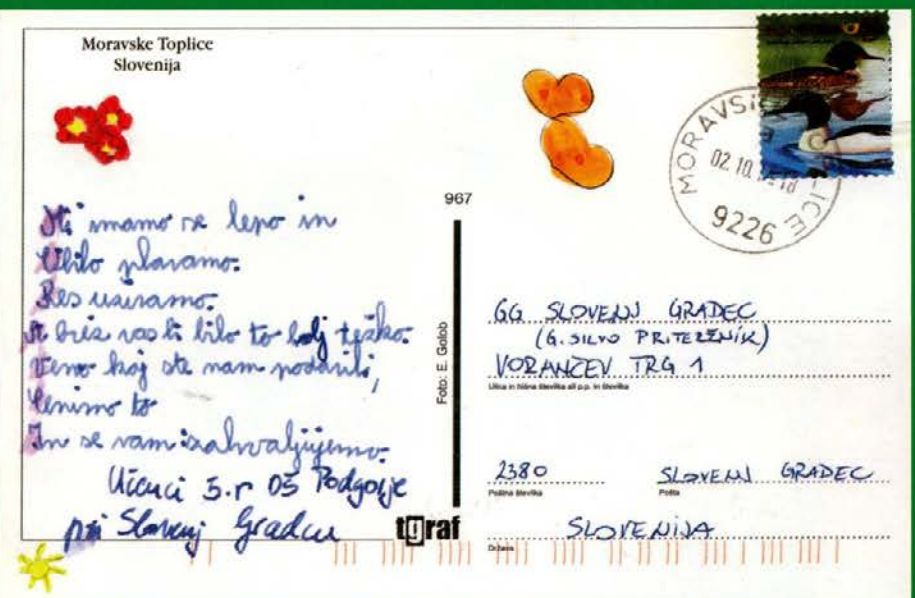 Moravske Toplice
Slovenija
Mi imamo se lepo in
Obilo plavamo.
Res uživamo.
A brez vas bi bilo to bolj težko.
Vemo kaj ste nam podarili,
Cenimo to
In se vam zahvaljujemo.
Učenci 5.r OŠ Podgorje
pri Slovenj Gradcu
967
Foto: E. Golob
tgraf
02.10.
9226
GG SLOVENJ GRADEC
(G. SILVO PRITERŽNIK)
VORANČEV TRG 1
Ulica in hišna številka ali p.p. in številka
2380 SLOVENJ GRADEC
Poštna številka Pošta
SLOVENIJA
Država